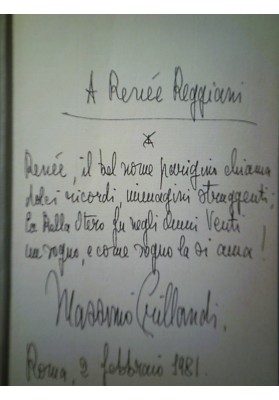 A Renée Reggiani
Renée, il bel nome parigino chiama
dolci ricordi, immagini struggenti;
La Bella Otero fu negli Anni Venti
un sogno, e come sogno la si ama!
Massimo Grillandi.
Roma, 2 febbraio 1981.